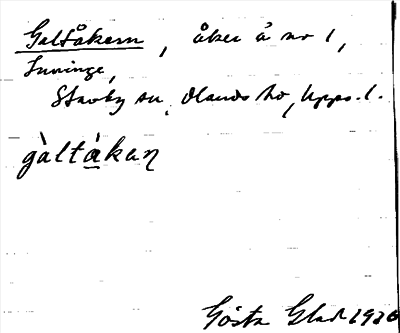 Galtåkern, åker å nr 1,
Inninge,
Stavby sn, Olands hd, Upps. l.
gàltàkaɳ
Gösta Glad 1920